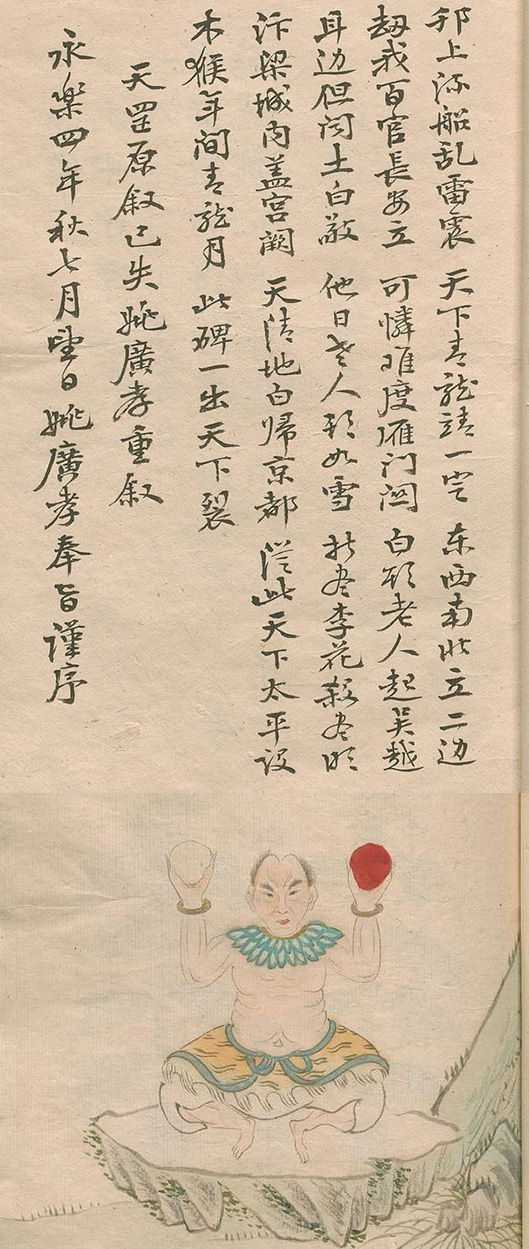 邗上添船乱雷震 天下青龙靖一空 东西南北立二边
劫哉百官長安立 可憐难度雁门関 白头老人起吴越
耳边但闻土白敲 他日老人头如雪 折尽李花殺尽明
汴梁城内盖宫闕 天清地白帰京都 従此天下太平设
木猴年间青龙月 此碑一出天下裂
天罡原叙已失姚廣孝重叙
永樂四年秋七月 日姚廣孝奉旨谨序